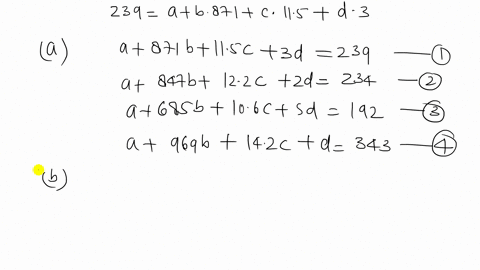 239 = a + b.871 + c.11.5 + d.3
(a) a + 871b + 11.5c + 3d = 239 — ①
a + 847b + 12.2c + 2d = 234 — ②
a + 685b + 10.6c + 5d = 192 — ③
a + 969b + 14.2c + d = 343 — ④
(b)